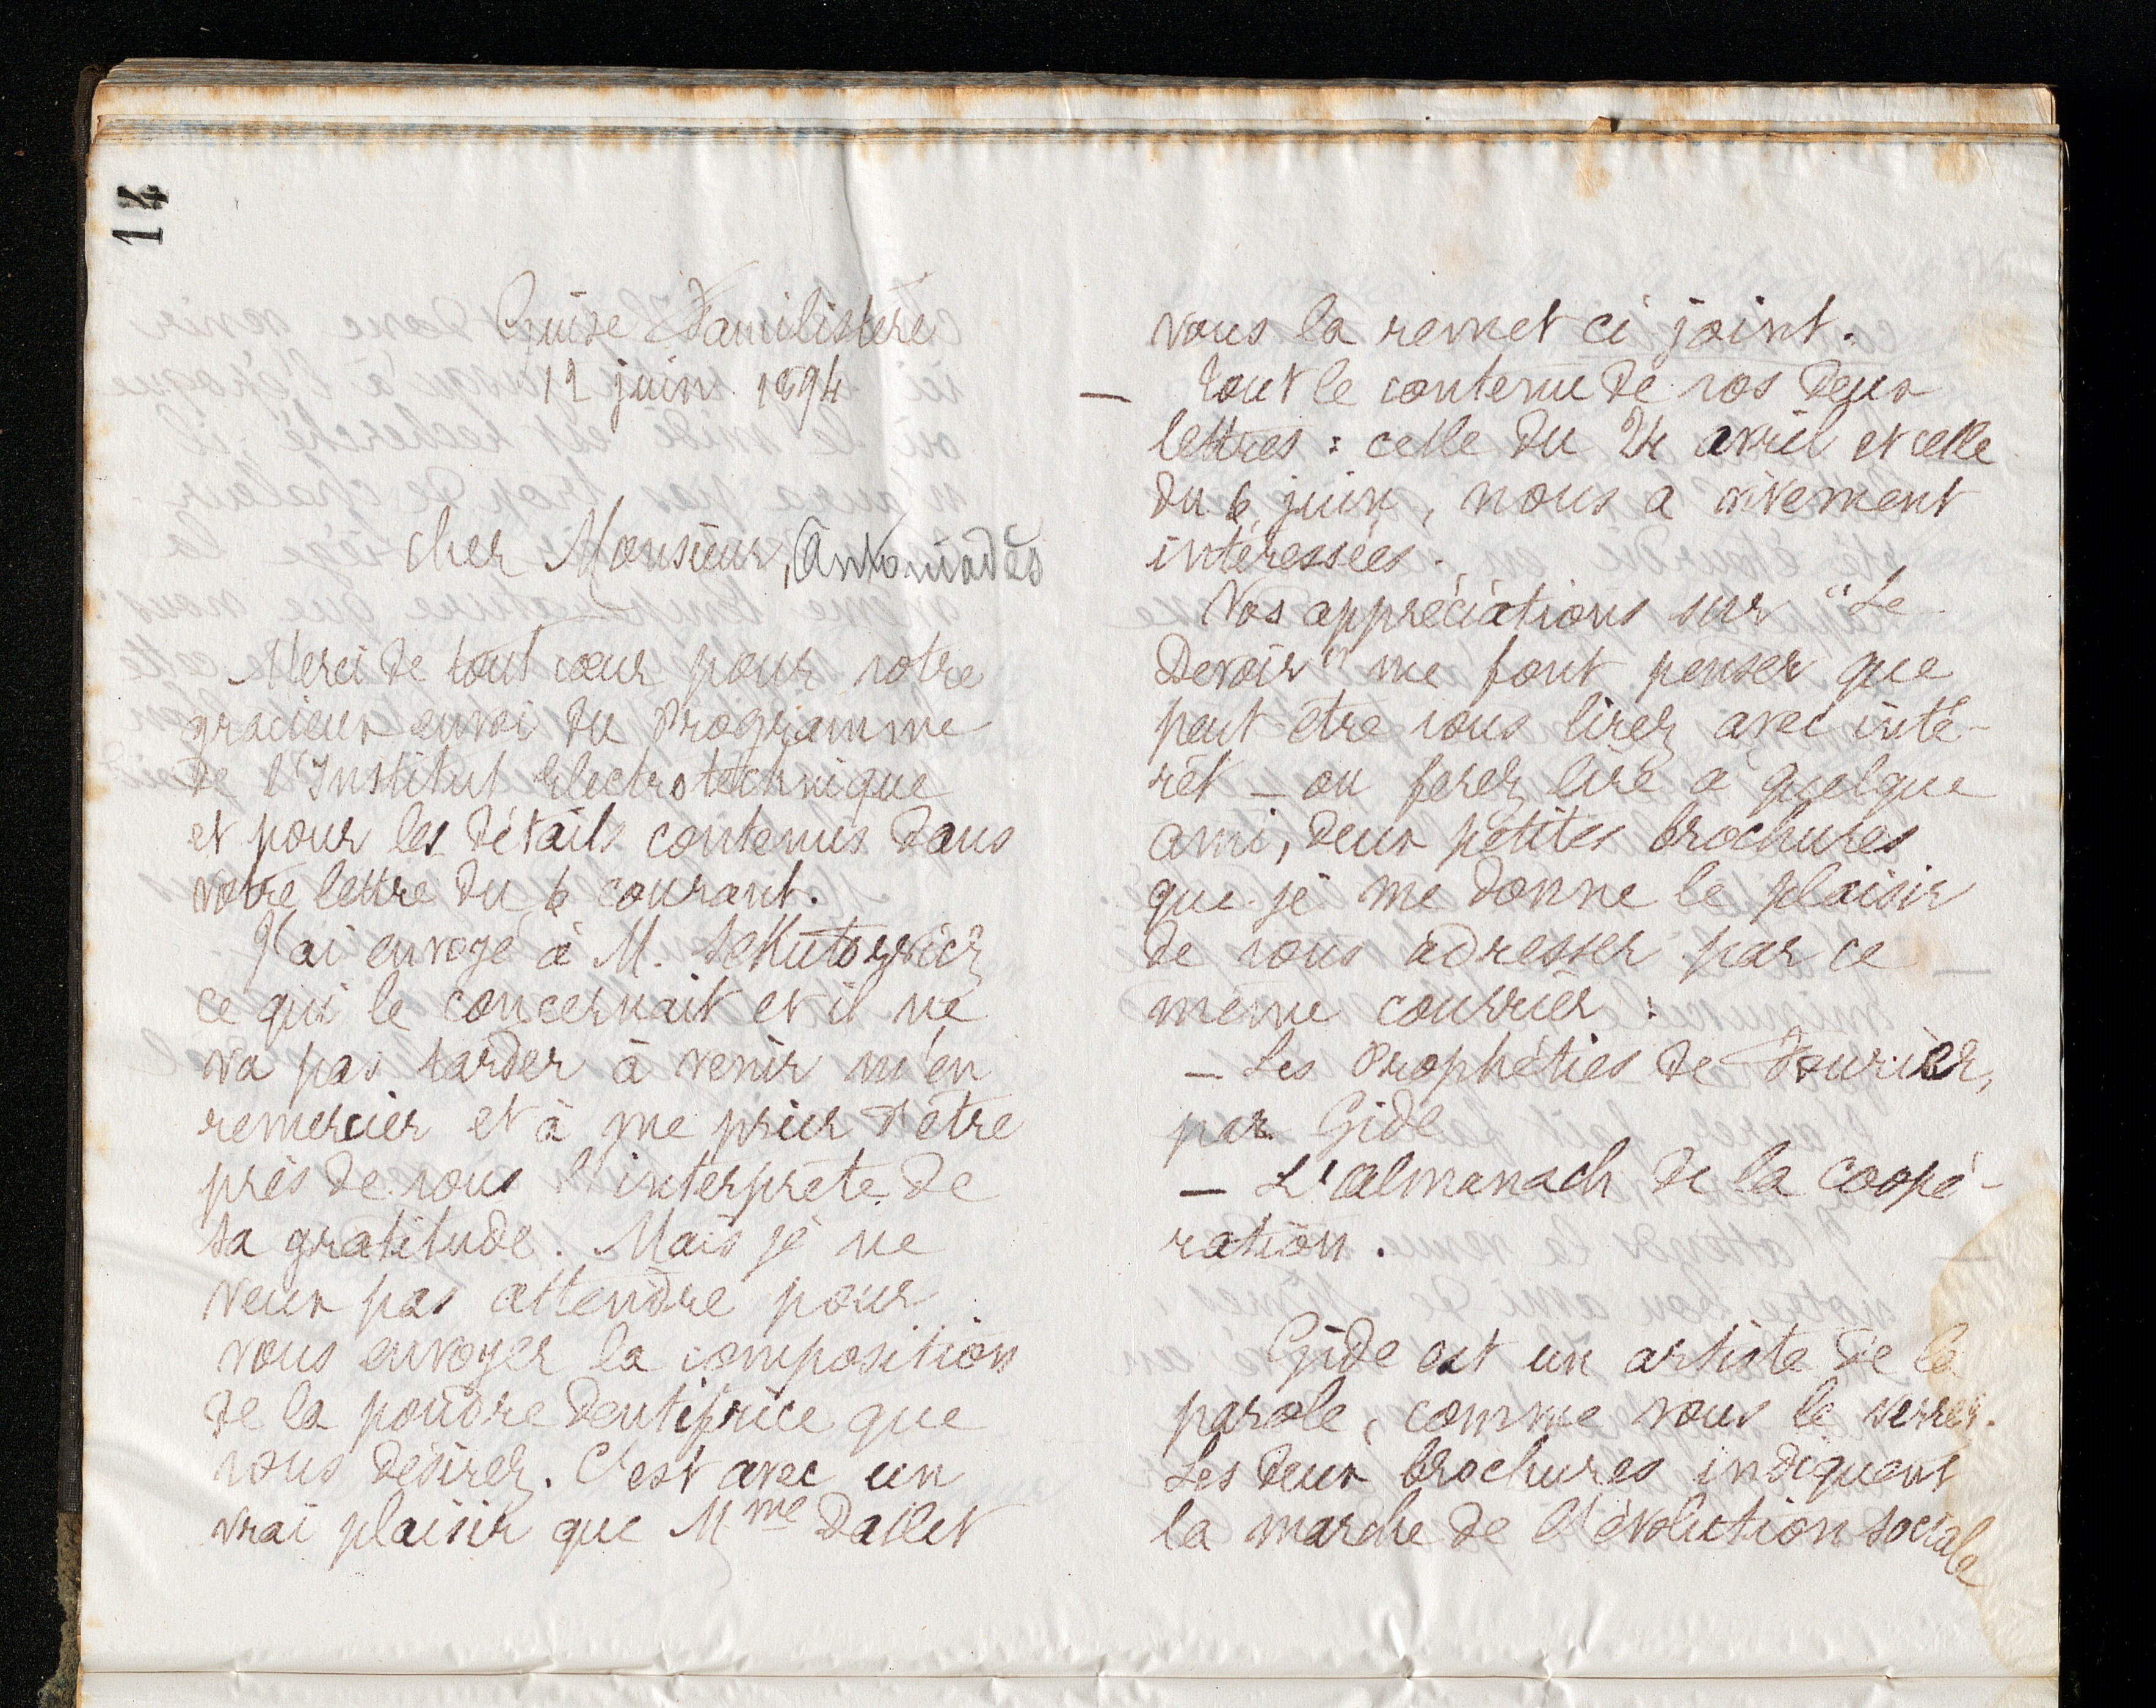 14
Guise Familistère
12 juin 1894
cher Monsieur, Antoniadès
Merci de tout cœur pour votre
gracieux envoi du Programme
de l'Institut Electrotechnique
et pour les détails contenus dans
votre lettre du 6 courant.
J'ai envoyé à M. Sekutowicz
ce qui le concernait et il ne
va pas tarder à venir m'en
remercier et à me prier d'être
près de vous l'interprète de
sa gratitude. Mais je ne
veux pas attendre pour
vous envoyer la composition
de la poudre dentifrice que
vous désirez. C'est avec un
vrai plaisir que Mme Dallet
vous la remet ci joint.
— Tout le contenu de vos deux
lettres : celle du 24 avril et celle
du 6 juin, nous a vivement
intéressées.
Vos appréciations sur "Le
Devoir" me font penser que
peut être vous lirez avec inté-
rêt — ou ferez lire à quelque
ami, deux petites brochures
que je me donne le plaisir
de vous adresser par ce
même courrier :
— Les Prophéties de Fourier,
par Gide
— L'almanach de la Coopé-
ration.
Gide est un artiste de la
parole, comme vous le verrez.
Les deux brochures indiquent
la marche de l'évolution sociale